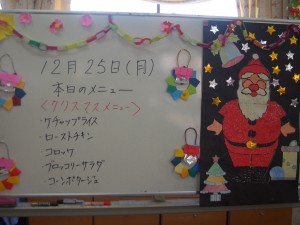 12月25日(月)
本日のメニュー
〈クリスマスメニュー〉
・ケチャップライス
・ローストチキン
・コロッケ
・ブロッコリーサラダ
・コーンポタージュ